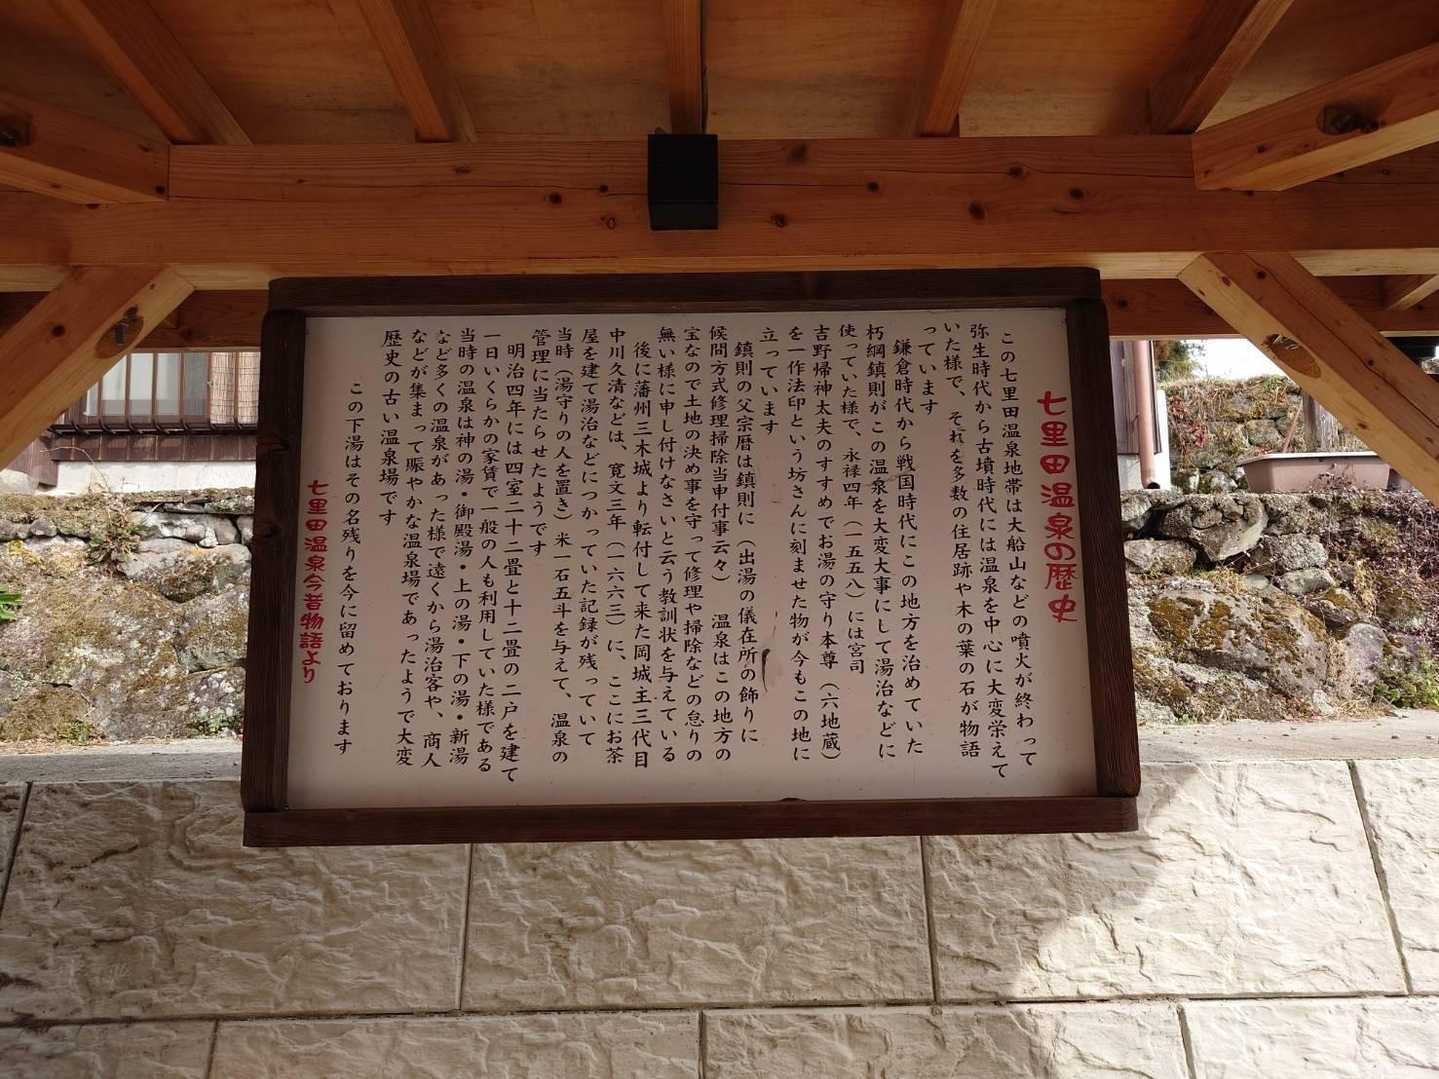 七里田温泉の歴史
この七里田温泉地帯は大船山などの噴火が終わって
弥生時代から古墳時代には温泉を中心に大変栄えて
いた様で、それを多数の住居跡や木の葉の石が物語
っています
鎌倉時代から戦国時代にこの地方を治めていた
朽綱鎮則がこの温泉を大変大事にして湯治などに
使っていた様で、永禄四年(一五五八)には宮司
吉野掃神太夫のすすめでお湯の守り本尊(六地蔵)
を一作法印という坊さんに刻ませた物が今もこの地に
立っています
鎮則の父宗暦は鎮則に(出湯の儀在所の飾りに
候間方式修理掃除当申付事云々) 温泉はこの地方の
宝なので土地の決め事を守って修理や掃除などの怠りの
無い様に申し付けなさいと云う教訓状を与えている
後に藩州三木城より転付して来た岡城主三代目
中川久清などは、寛文三年(一六六三)に、ここにお茶
屋を建て湯治などにつかっていた記録が残っていて
当時(湯守りの人を置き)米一石五斗を与えて、温泉の
管理に当たらせたようです
明治四年には四室二十二畳と十二畳の二戸を建て
一日いくらかの家賃で一般の人も利用していた様である
当時の温泉は神の湯・御殿湯・上の湯・下の湯・新湯
など多くの温泉があった様で遠くから湯治客や、商人
などが集まって賑やかな温泉場であったようで大変
歴史の古い温泉場です
この下湯はその名残りを今に留めております
七里田温泉今昔物語より